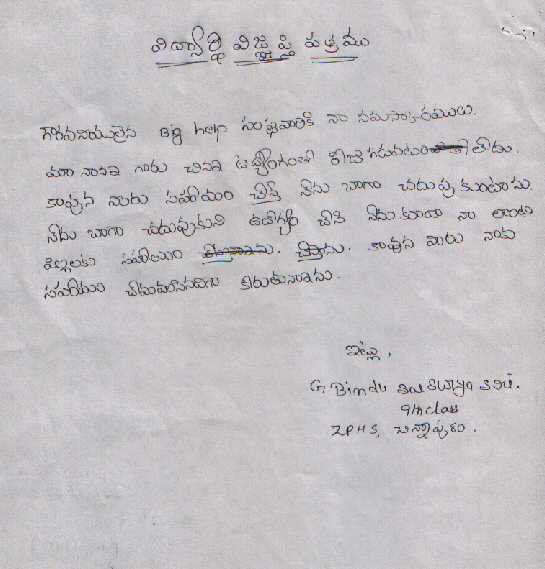 విద్యార్థి విజ్ఞప్తి పత్రము
గౌరవనీయులైన Big help సంస్థవారికి నా నమస్కారములు.
మా నాన్న గారు చిన్న ఉద్యోగంతో రోజు గడుపటం లేదు.
కావున నాకు సహాయం చేస్తే నేను బాగా చదువు కుంటాను.
నేను బాగా చదువుకుని ఉద్యోగం చేసి నేను కూడా నా లాంటి
పిల్లలకు సహాయం చేస్తాను. కావున మీరు నాకు
సహాయం చేయవలసినదిగా కోరుతున్నాను.
ఇట్లు,
G. Bindu
9th class
ZPHS, చిన్నాపురం.